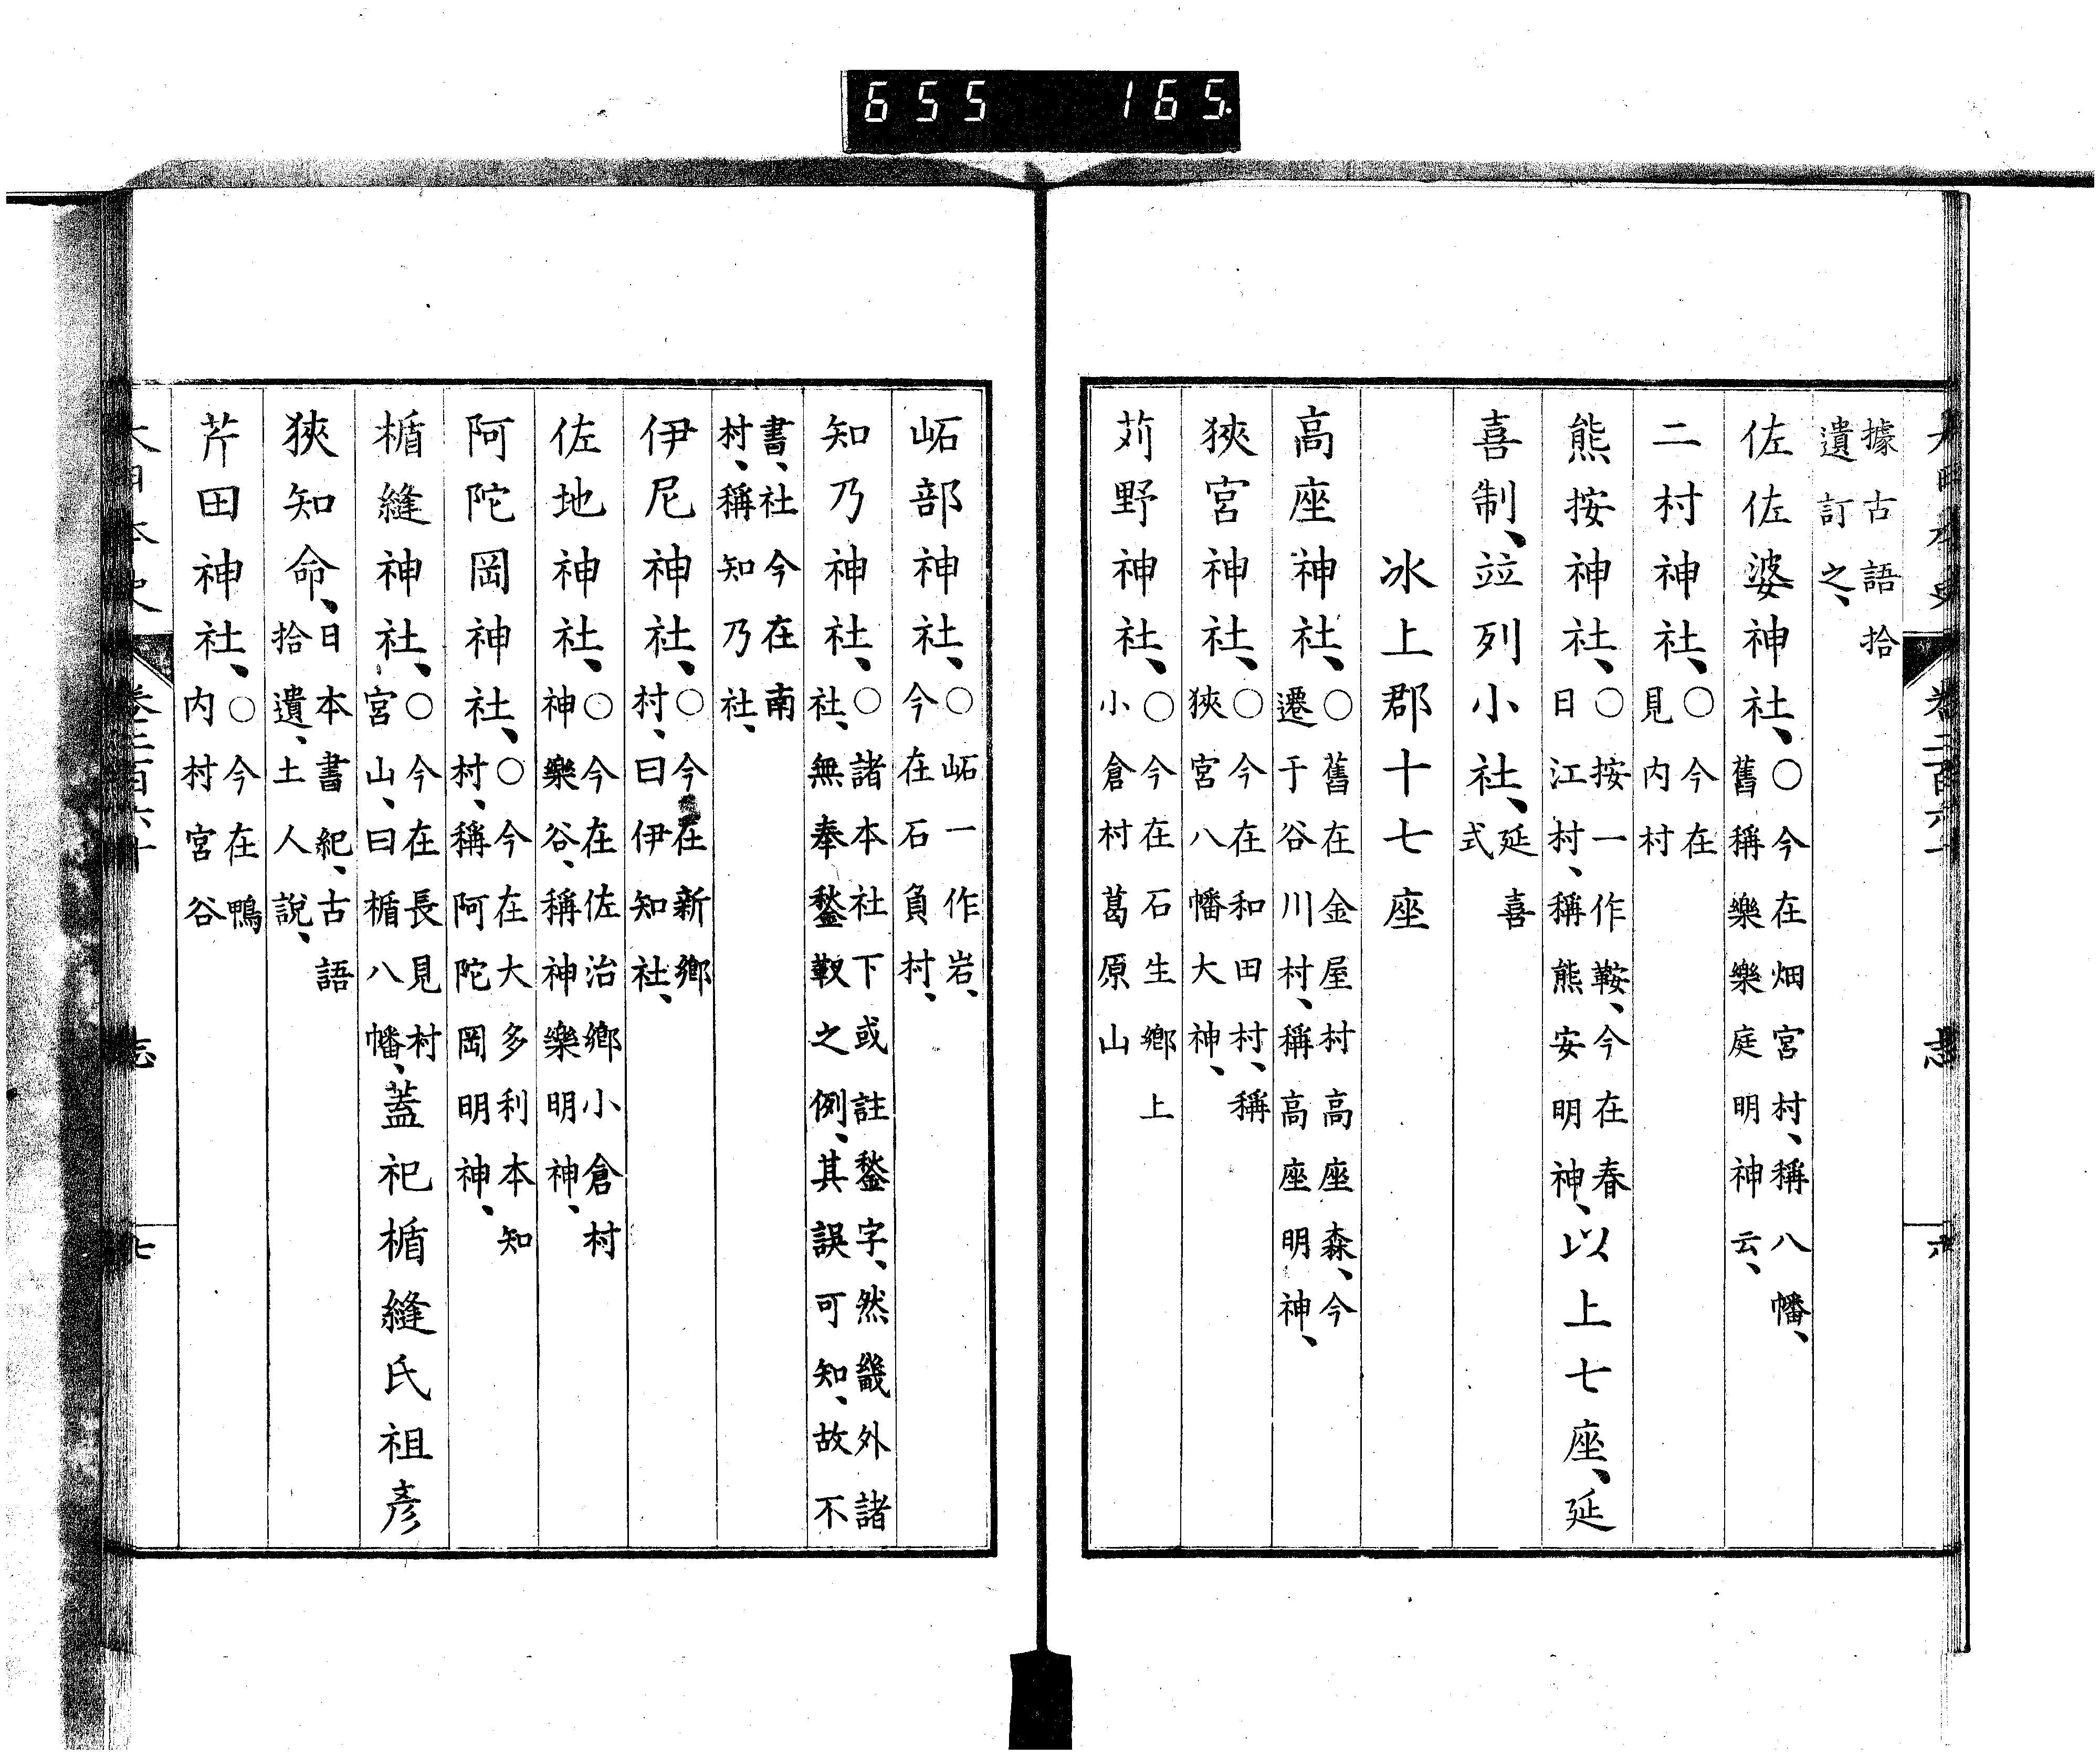 655 165.
據古語拾
遺訂之、
佐佐婆神社、○今在畑宮村、稱八幡、
舊稱樂樂庭明神云、
二村神社、○今在
見内村
熊按神社、○按一作鞍、今在春
日江村、稱熊安明神、以上七座、延
喜制、竝列小社、延喜
式
冰上郡十七座
高座神社、○舊在金屋村高座森、今
遷于谷川村、稱高座明神、
狹宮神社、○今在和田村、稱
狹宮八幡大神、
苅野神社、○今在石生鄉上
小倉村葛原山
㟯部神社、○㟯一作岩、
今在石負村、
知乃神社、○諸本社下或註鍫字、然畿外諸
社、無奉鍫靫之例、其誤可知、故不
書、社今在南
村、稱知乃社、
伊尼神社、○今在新鄉
村、曰伊知社、
佐地神社、○今在佐治鄉小倉村
神樂谷、稱神樂明神、
阿陀岡神社、○今在大多利本知
村、稱阿陀岡明神、
楯縫神社、○今在長見村
宮山、曰楯八幡、蓋祀楯縫氏祖彥
狹知命、日本書紀、古語
拾遺、土人說、
芹田神社、○今在鴨
内村宮谷